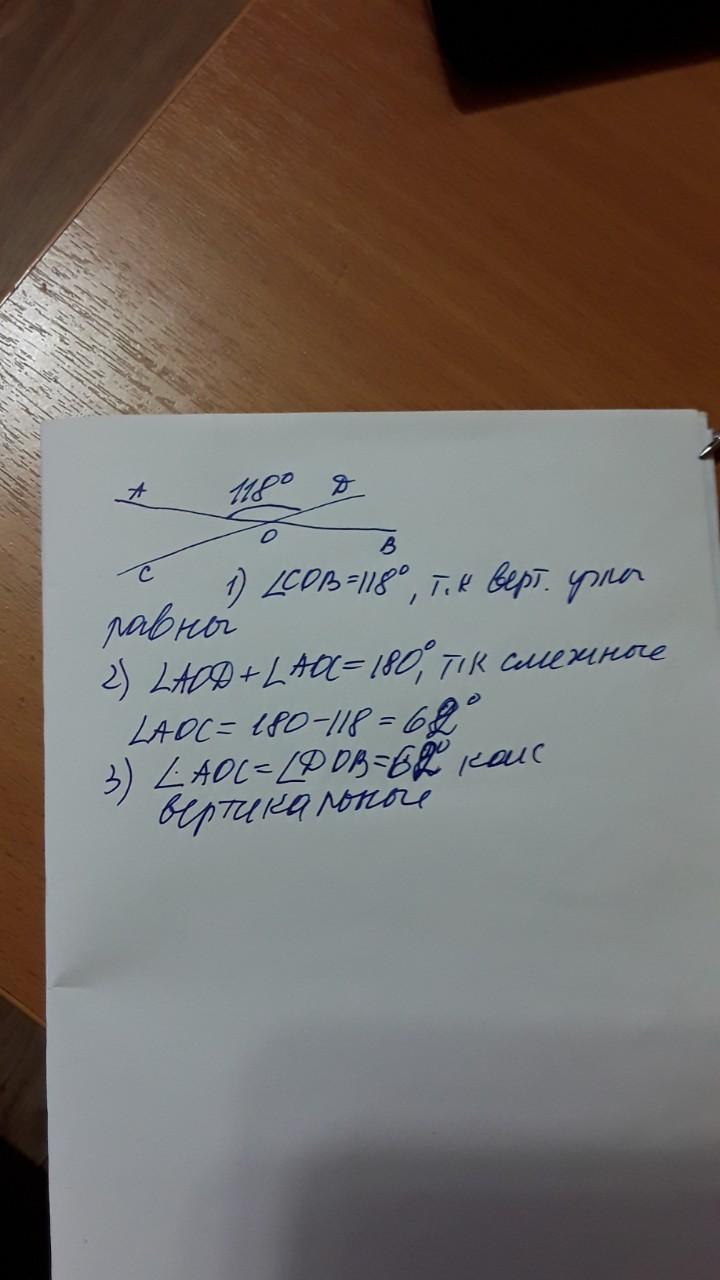 A 118° D
O
B
C
1) ∠COB=118°, т.к верт. углы
равны
2) ∠AOD+∠AOC=180°, т.к смежные
∠AOC=180-118=62°
3) ∠AOC=∠DOB=62° как
вертикальные